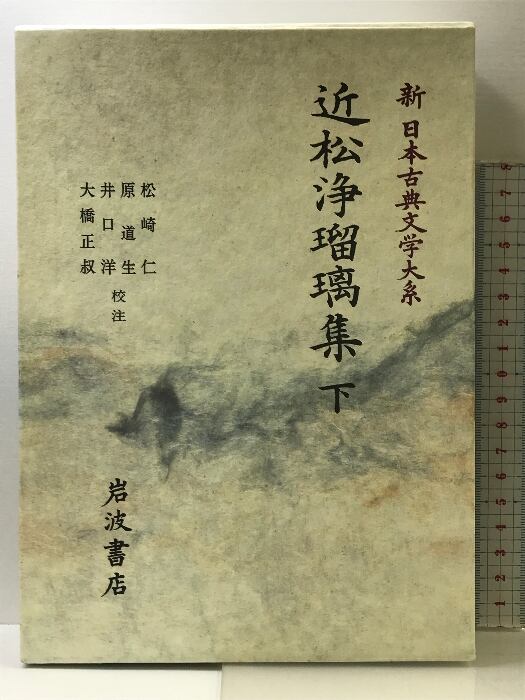 新 日本古典文学大系
近松浄瑠璃集 下
松崎仁
原道生
井口洋
大橋正叔
校注
岩波書店